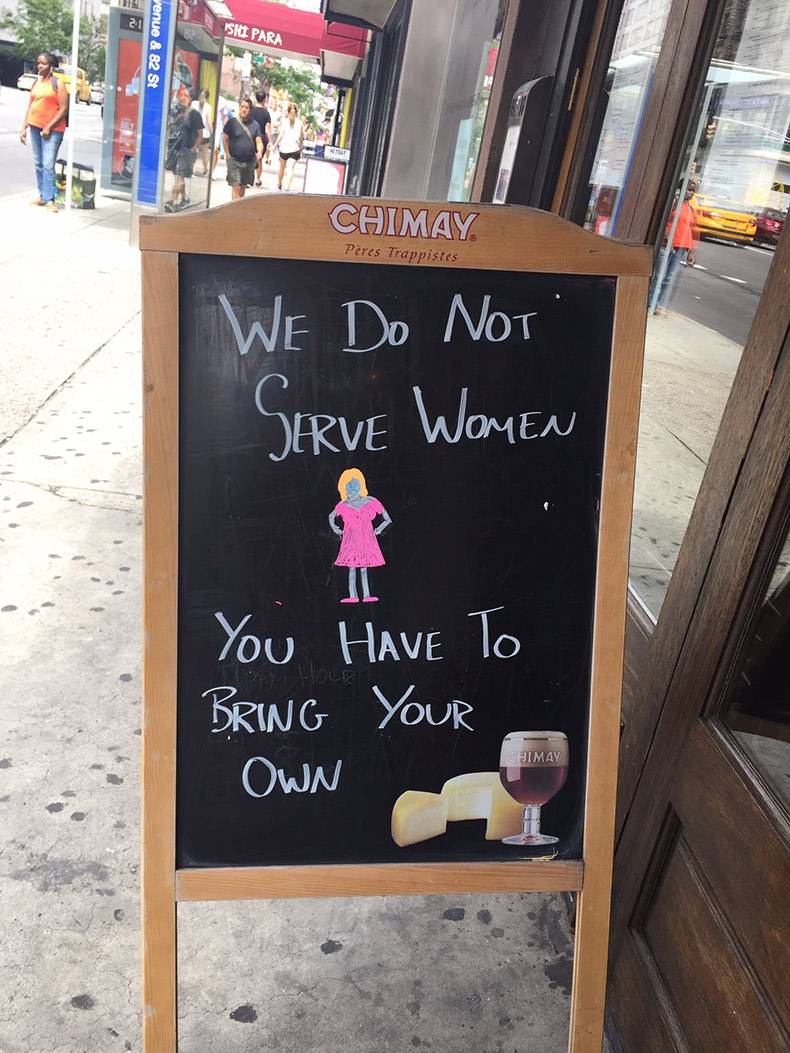 venue & 82 St
SHI PARA
CHIMAY
Pères Trappistes
WE DO NOT
SERVE WOMEN
YOU HAVE TO
BRING YOUR
OWN
CHIMAY